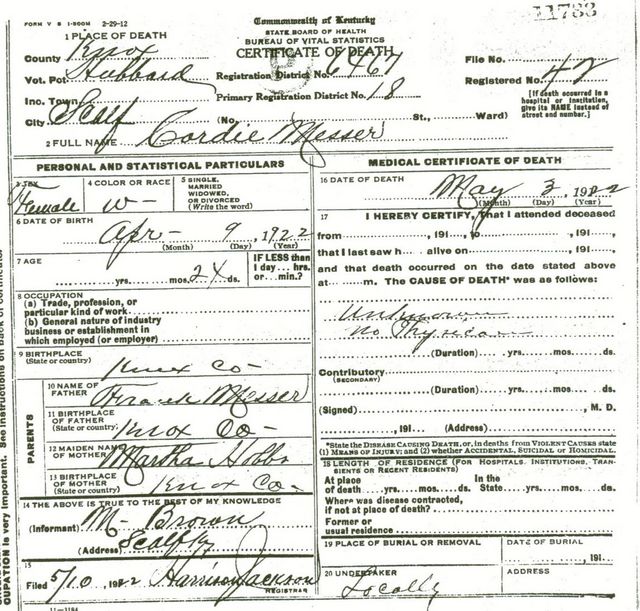 FORM V S 1-500M 2-29-12
11783
Commonwealth of Kentucky
STATE BOARD OF HEALTH
BUREAU OF VITAL STATISTICS
CERTIFICATE OF DEATH
1 PLACE OF DEATH
County Knox
Vot. Pct. Hubbard
Inc. Town
City Scalf
Registration District No. 6467
Primary Registration District No. 18
(No. St., Ward)
File No.
Registered No. 42
[If death occurred in a hospital or institution, give its NAME instead of street and number.]
2 FULL NAME Cordie Messer
PERSONAL AND STATISTICAL PARTICULARS
3 SEX Female
4 COLOR OR RACE W-
5 SINGLE, MARRIED WIDOWED, OR DIVORCED (Write the word)
6 DATE OF BIRTH
Apr- 9, 1922
(Month) (Day) (Year)
7 AGE
yrs. mos. 24 ds.
IF LESS than 1 day... hrs. or... min.?
8 OCCUPATION
(a) Trade, profession, or particular kind of work
(b) General nature of industry business or establishment in which employed (or employer)
9 BIRTHPLACE
(State or country) Knox Co-
PARENTS
10 NAME OF FATHER Frank Messer
11 BIRTHPLACE OF FATHER
(State or country) Knox Co-
12 MAIDEN NAME OF MOTHER Martha Hobbs
13 BIRTHPLACE OF MOTHER
(State or country) Knox Co-
14 THE ABOVE IS TRUE TO THE BEST OF MY KNOWLEDGE
(Informant) M- Brown
(Address) Scalf Ky
15
Filed 5/10 1922 Harrison Jackson
REGISTRAR
11-3184
MEDICAL CERTIFICATE OF DEATH
16 DATE OF DEATH
May 3, 1922
(Month) (Day) (Year)
17 I HEREBY CERTIFY, That I attended deceased
from , 191 , to , 191 ,
that I last saw h alive on , 191 ,
and that death occurred on the date stated above
at m. The CAUSE OF DEATH* was as follows:
Unknown
no Physician
(Duration) yrs. mos. ds.
Contributory
(SECONDARY)
(Duration) yrs. mos. ds.
(Signed) , M. D.
, 191 (Address)
*State the DISEASE CAUSING DEATH, or, in deaths from VIOLENT CAUSES state
(1) MEANS OF INJURY; and (2) whether ACCIDENTAL, SUICIDAL or HOMICIDAL.
18 LENGTH OF RESIDENCE (FOR HOSPITALS, INSTITUTIONS, TRANSIENTS OR RECENT RESIDENTS)
At place of death yrs. mos. ds. In the State yrs. mos. ds.
Where was disease contracted,
if not at place of death?
Former or
usual residence
19 PLACE OF BURIAL OR REMOVAL
DATE OF BURIAL
, 191
20 UNDERTAKER
Locally
ADDRESS
CUPATION is very important. See instructions on back of certificate